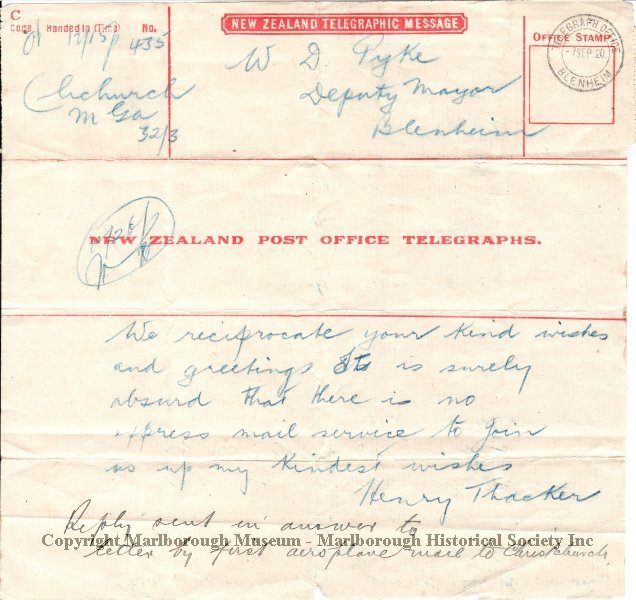 C
NEW ZEALAND TELEGRAPHIC MESSAGE
Code. Handed in (Time) No.
OFFICE STAMP.
TELEGRAPH OFFICE
-7 SEP. 20
BLENHEIM
435
W. D. Pyke
Deputy Mayor
Blenheim
Chchurch
M Ga
32/3
NEW ZEALAND POST OFFICE TELEGRAPHS.
We reciprocate your kind wishes
and greetings It is surely
absurd that there is no
express mail service to join
us up my kindest wishes
Henry Thacker
Reply sent in answer to
letter by first aeroplane mail to Christchurch
Copyright Marlborough Museum - Marlborough Historical Society Inc